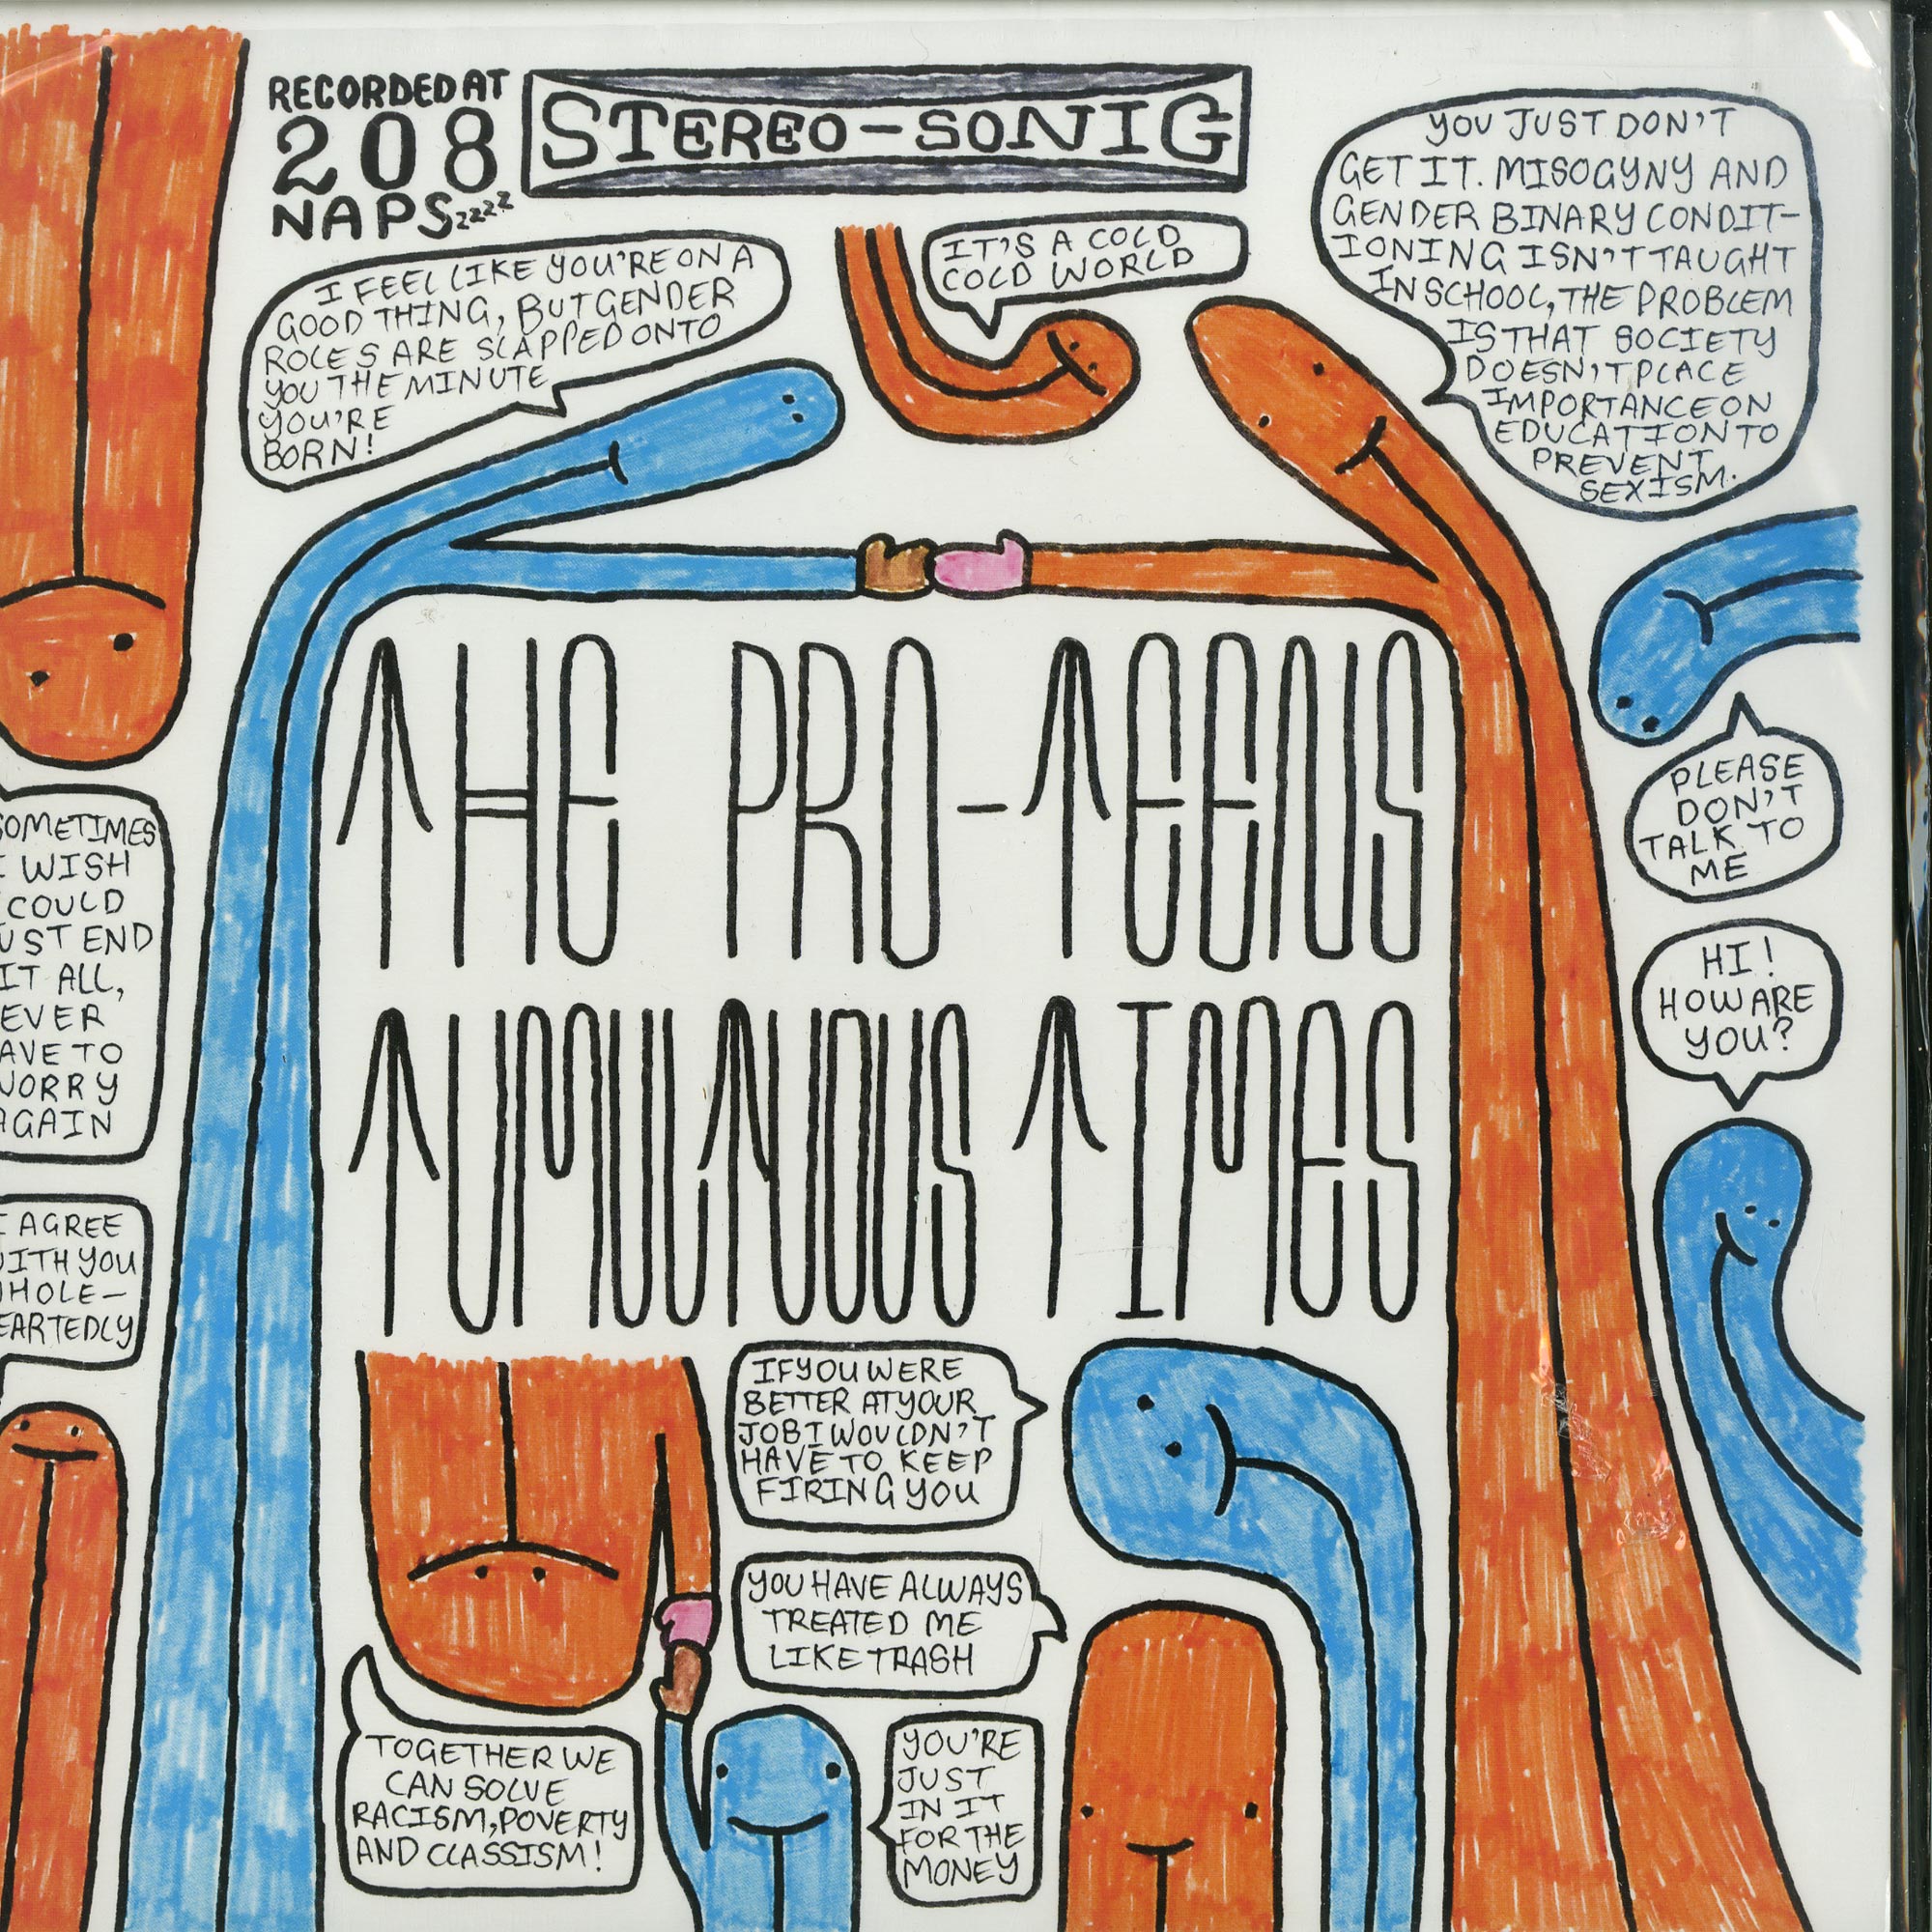 RECORDED AT
208
NAPSzzzz
STEREO-SONIC
I FEEL LIKE YOU'RE ON A
GOOD THING, BUT GENDER
ROLES ARE SLAPPED ONTO
YOU THE MINUTE
YOU'RE
BORN!
IT'S A COLD
COLD WORLD
YOU JUST DON'T
GET IT. MISOGYNY AND
GENDER BINARY CONDIT-
IONING ISN'T TAUGHT
IN SCHOOL, THE PROBLEM
IS THAT SOCIETY
DOESN'T PLACE
IMPORTANCE ON
EDUCATION TO
PREVENT
SEXISM.
THE PRO-TEENS
TUMULTUOUS TIMES
PLEASE
DON'T
TALK TO
ME
HI!
HOW ARE
YOU?
SOMETIMES
I WISH
COULD
UST END
IT ALL,
EVER
AVE TO
WORRY
AGAIN
I AGREE
WITH YOU
WHOLE-
EARTEDLY
IF YOU WERE
BETTER AT YOUR
JOB I WOULDN'T
HAVE TO KEEP
FIRING YOU
YOU HAVE ALWAYS
TREATED ME
LIKE TRASH
TOGETHER WE
CAN SOLVE
RACISM, POVERTY
AND CLASSISM!
YOU'RE
JUST
IN IT
FOR THE
MONEY